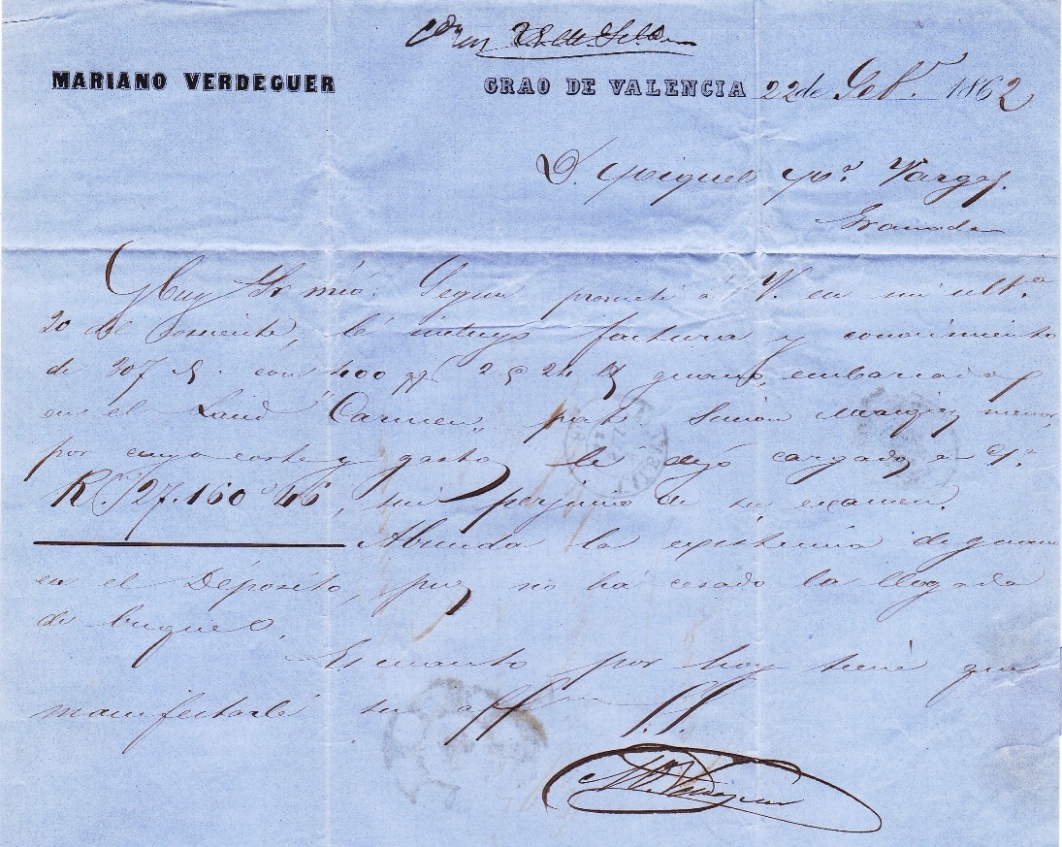 MARIANO VERDEGUER
GRAO DE VALENCIA 22 de Feb.º 1862
D. Miguel M.ª Vargas.
Granada
Muy Sr mio: Segun prometí á V. en mi ult.ª
20 del corriente, le incluyo factura y conocimiento
de 207 con 400 guano, embarcados
en el Laud "Carmen" pat.
por cuyo coste y gastos le dejo cargado en
R.s 27.160 46, sin perjuicio de su examen.
Abunda la existencia de guano
en el Depósito, pues no há cesado la llegada
de buques.
Es cuanto por hoy tiene que
manifestarle su aff.mo S.S.
M. Verdeguer